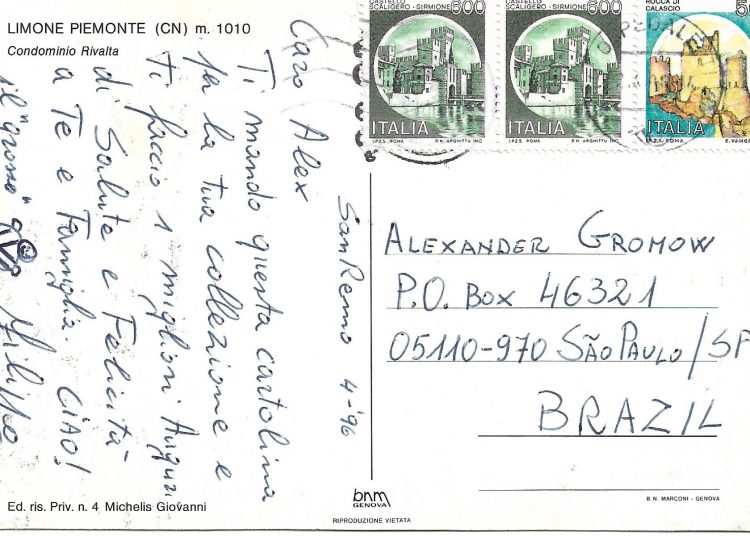 LIMONE PIEMONTE (CN) m. 1010
Condominio Rivalta
Caro Alex
Ti mando questa cartolina
la tua collezione e
Ti faccio i migliori Auguri
di Salute e Felicità
a Te e Famiglia. CIAO!
il "grosso"
San Remo 4-'96
CASTELLO
SCALIGERO - SIRMIONE
600
ITALIA
I.P.Z.S. ROMA
R.N. ARGHITTU INC
CASTELLO
SCALIGERO - SIRMIONE
600
ITALIA
I.P.Z.S. ROMA
R.N. ARGHITTU INC
ROCCA DI
CALASCIO
ITALIA
I.P.Z.S. - ROMA
ALEXANDER GROMOW
P.O. BOX 46321
05110-970 SÃO PAULO/SP
BRAZIL
Ed. ris. Priv. n. 4 Michelis Giovanni
bnm
GENOVA
RIPRODUZIONE VIETATA
B. N. MARCONI - GENOVA